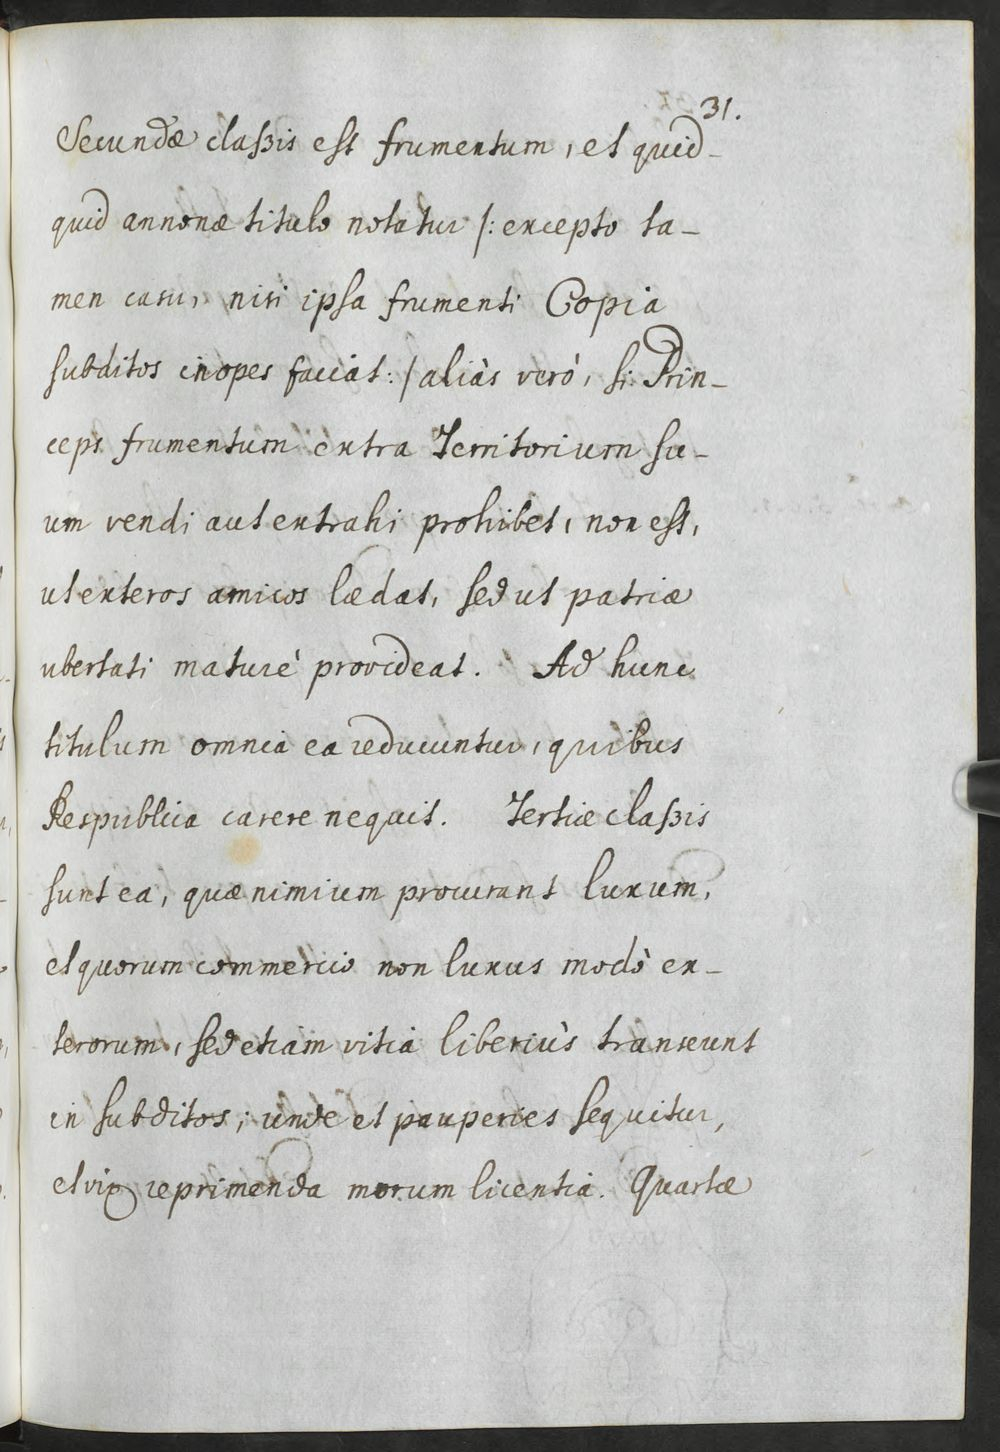 31.
Secundæ claßis est frumentum, et quid-
quid annonæ titulo notatur /: excepto ta-
men casu, nisi ipsa frumenti Copia
subditos inopes faciat :/ aliàs verò, si Prin-
ceps frumentum extra Territorium su-
um vendi aut extrahi prohibet, non est,
ut exteros amicos lædat, sed ut patriæ
ubertati maturè provideat. Ad hunc
titulum omnia ea reducuntur, quibus
Respublica carere nequit. Tertiæ claßis
sunt ea, quæ nimium procurant luxum,
et quorum commercio non luxus modò ex-
terorum, sed etiam vitia liberiùs transeunt
in subditos; unde et pauperies sequitur,
et vix reprimenda morum licentia. Quartæ